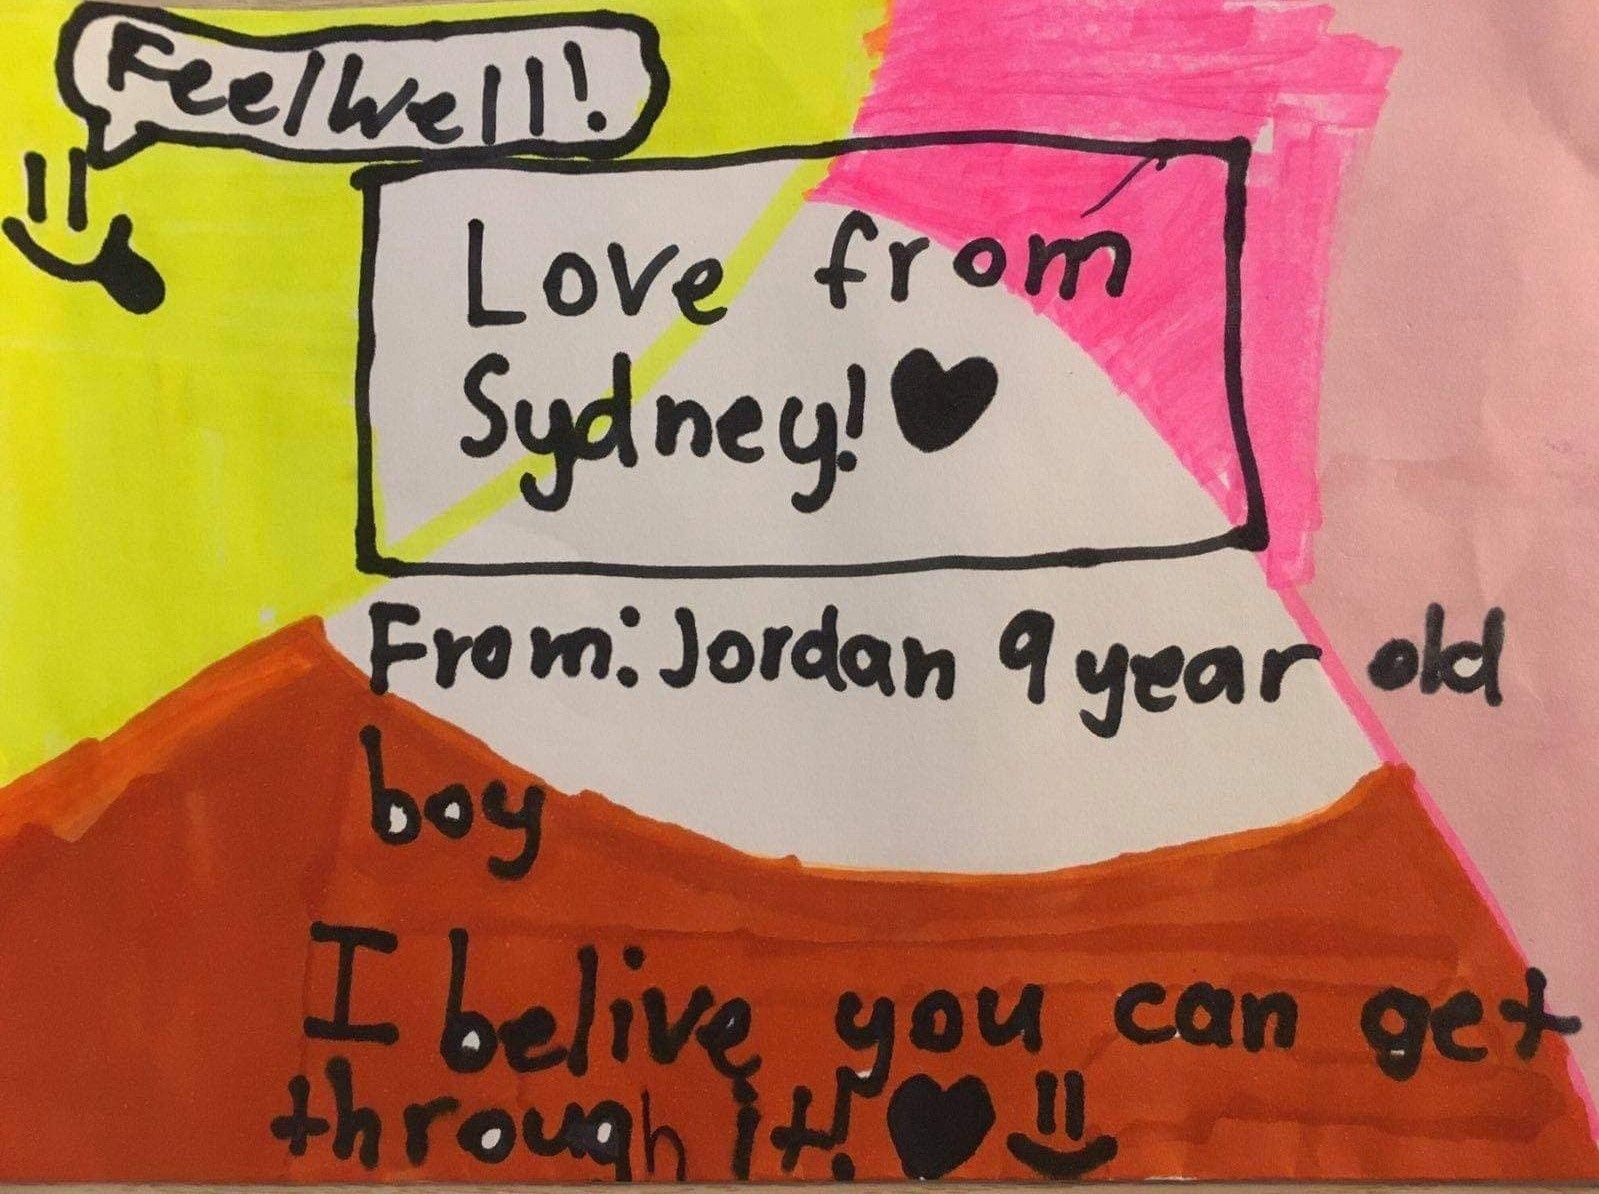 Feel Well!
Love from
Sydney!
From: Jordan 9 year old
boy
I belive you can get
through it!